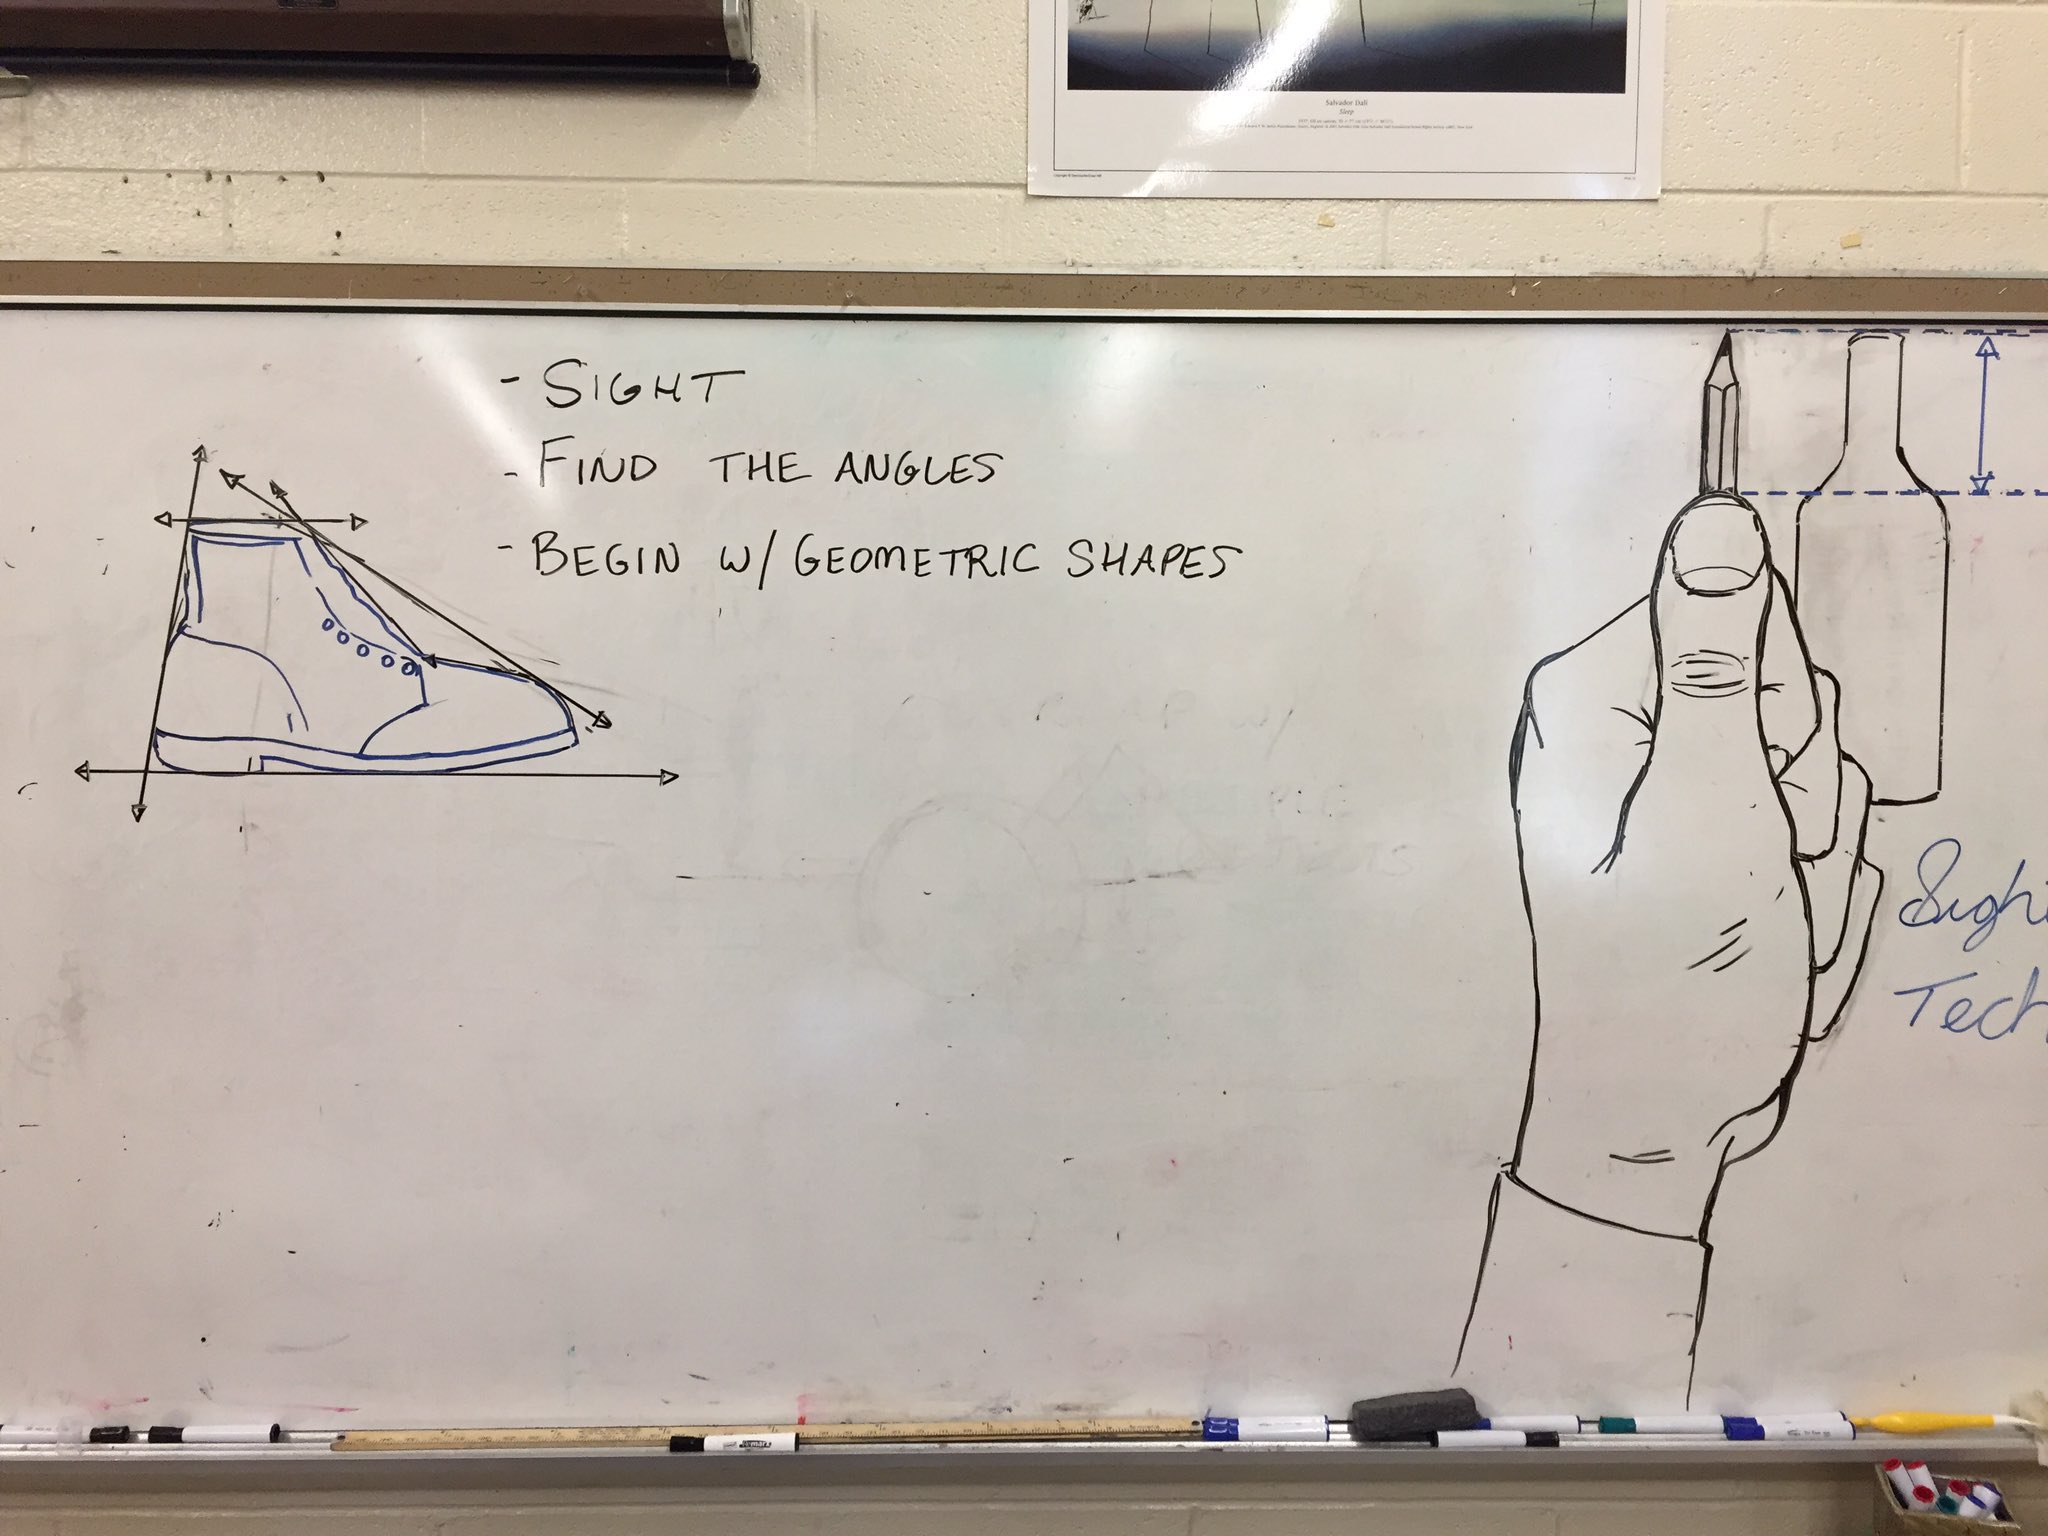 Salvador Dali
Sleep
- SIGHT
- FIND THE ANGLES
- BEGIN W/ GEOMETRIC SHAPES
Sighi
Tech